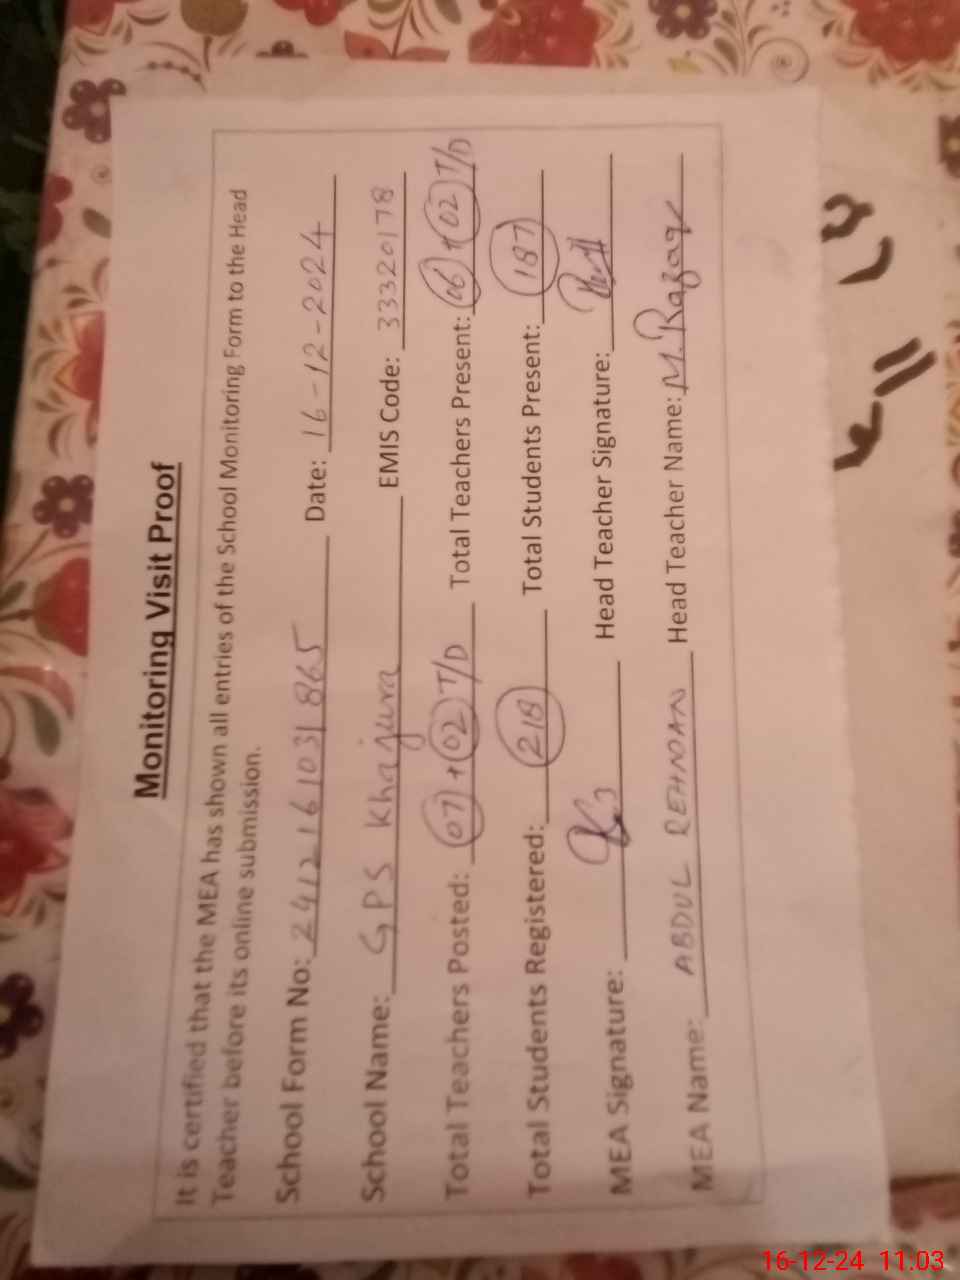 Monitoring Visit Proof
It is certified that the MEA has shown all entries of the School Monitoring Form to the Head
Teacher before its online submission.
School Form No: 241216 1031865 Date: 16-12-2024
School Name: GPS Khajura EMIS Code: 33320178
Total Teachers Posted: 07 + 02 T/D Total Teachers Present: 06 + 02 T/D
Total Students Registered: 218 Total Students Present: 187
MEA Signature: Head Teacher Signature:
MEA Name: ABDUL REHMAN Head Teacher Name: M. Razaq
16-12-24 11.03